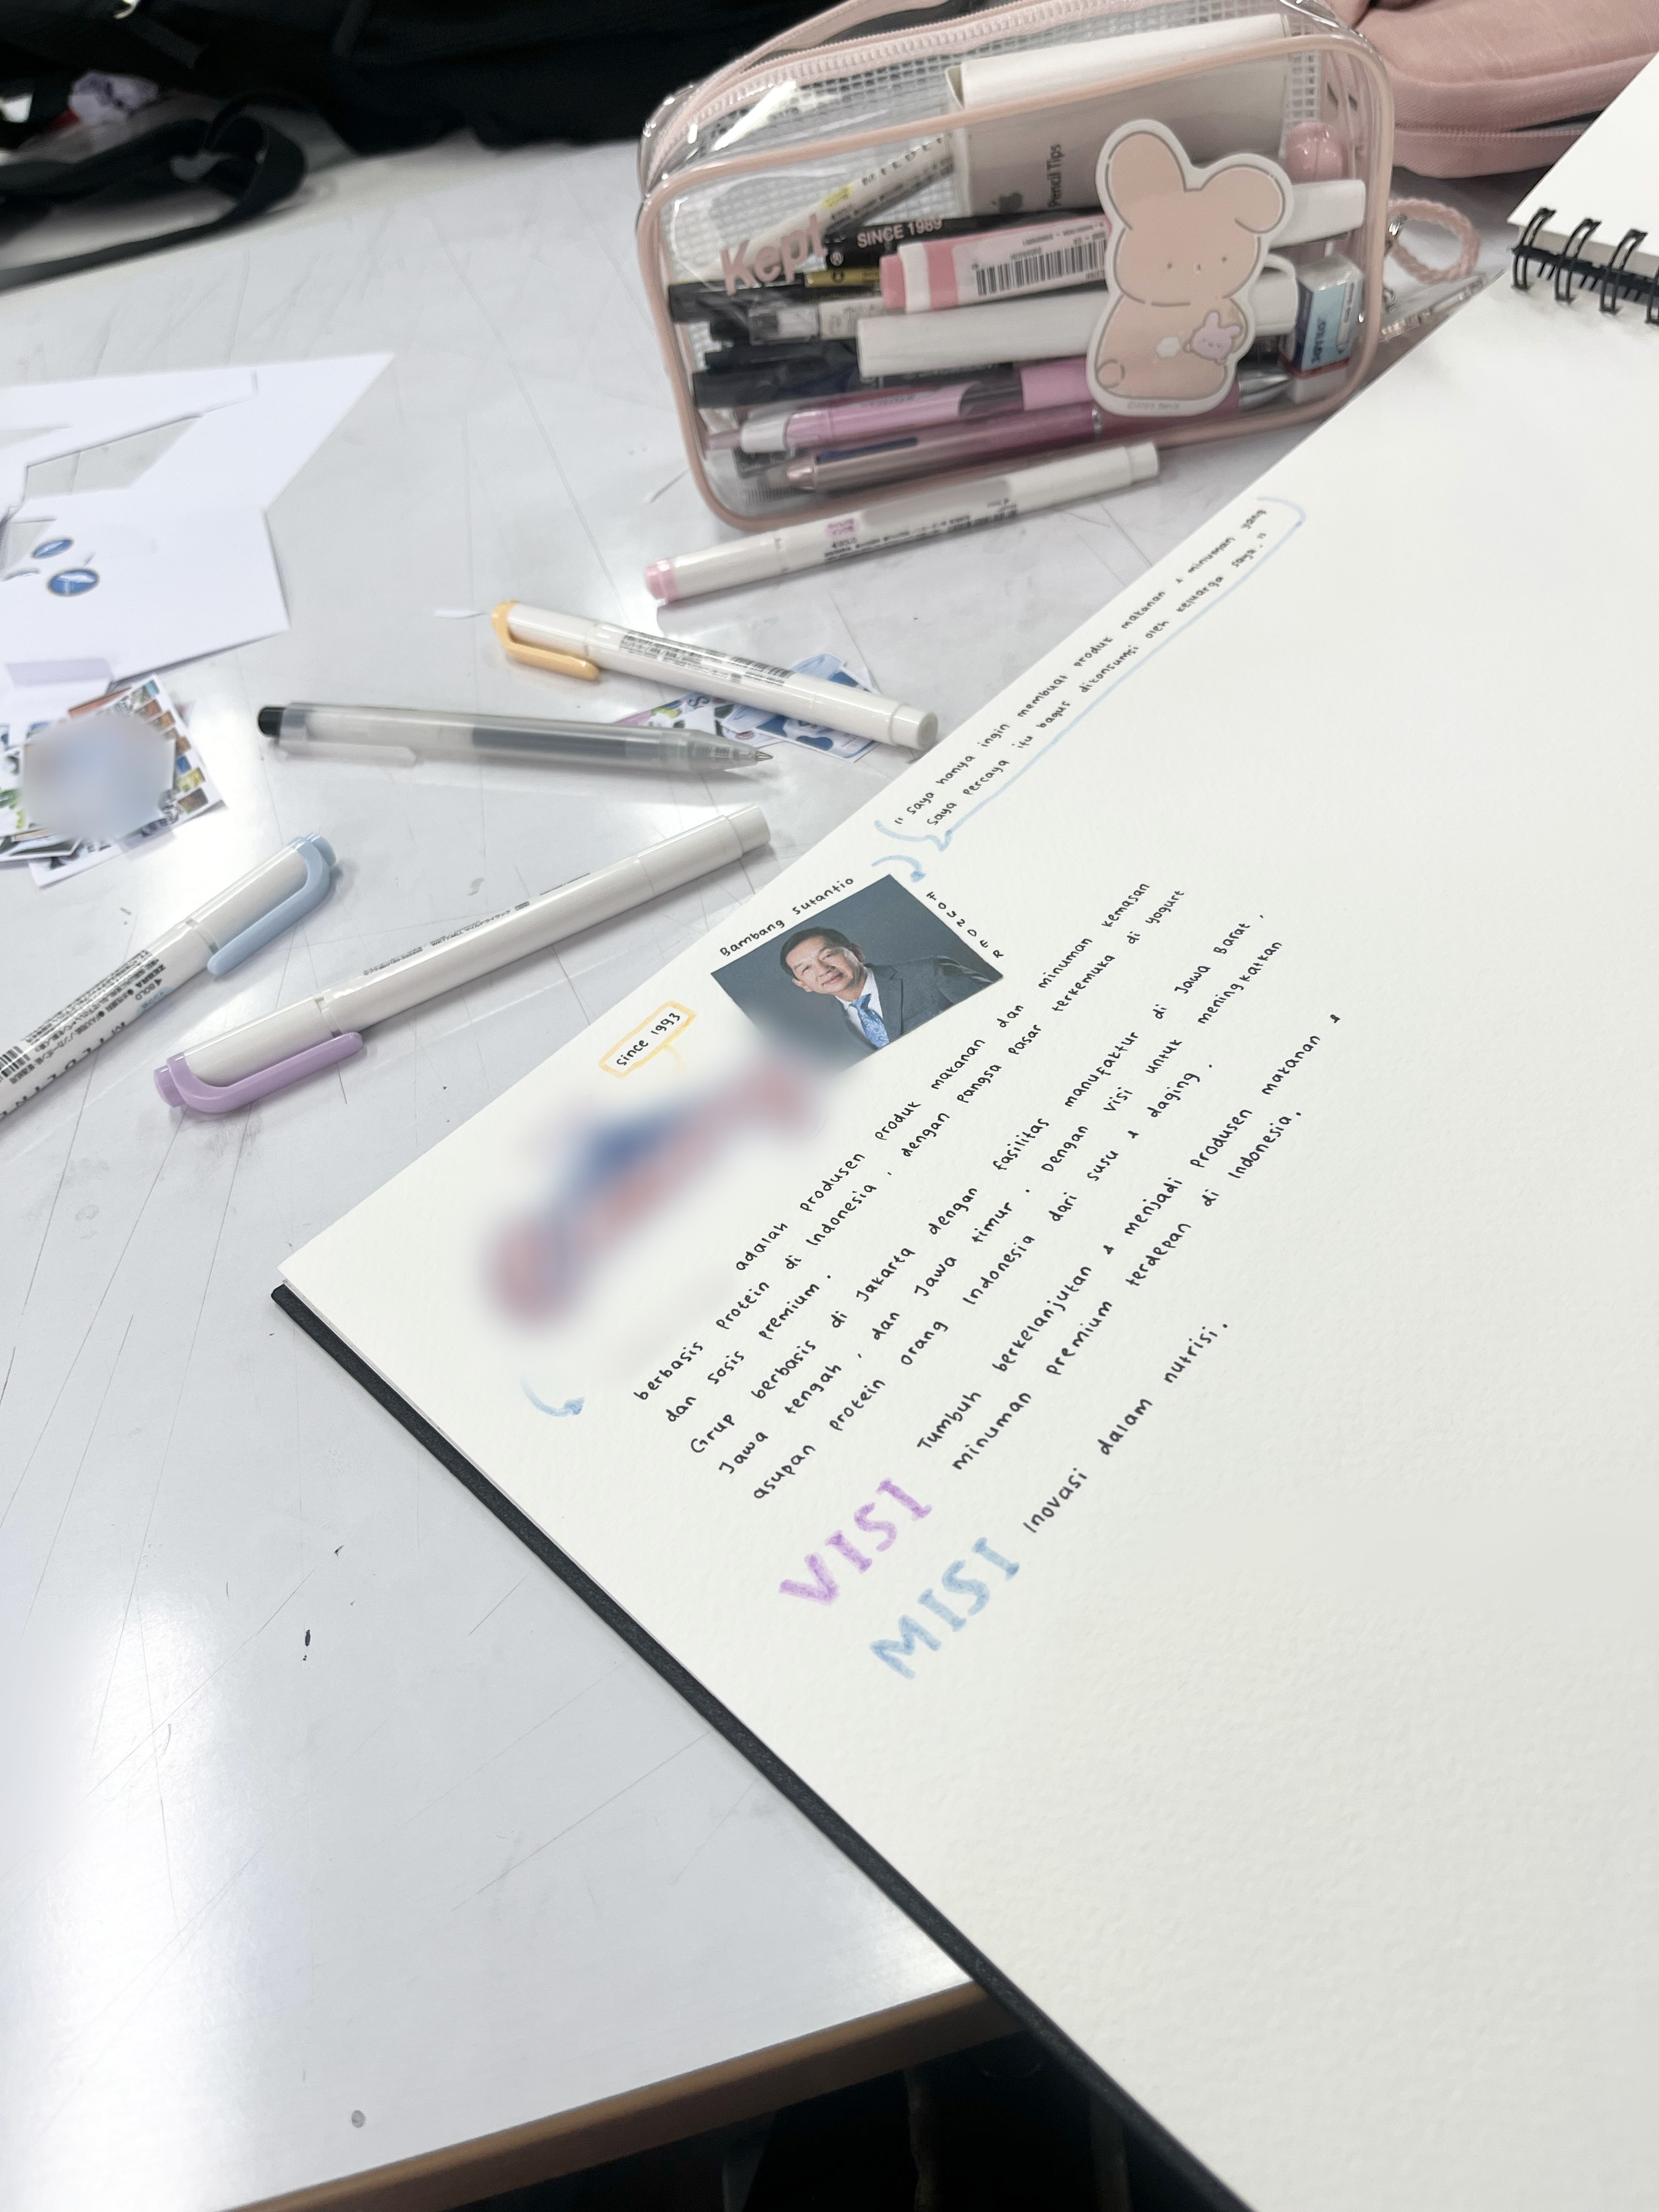 Kept
SINCE 1989
Pencil Tips
"Saya hanya ingin membuat produk makanan & minuman yang
saya percaya itu bagus dikonsumsi oleh keluarga saya."
Bambang Sutantio
FOUNDER
since 1993
adalah produsen produk makanan dan minuman kemasan
berbasis protein di Indonesia, dengan pangsa pasar terkemuka di yogurt
dan sosis premium.
Grup berbasis di Jakarta dengan fasilitas manufaktur di Jawa Barat,
Jawa tengah, dan Jawa timur. Dengan visi untuk meningkatkan
asupan protein orang Indonesia dari susu & daging.
VISI Tumbuh berkelanjutan & menjadi produsen makanan &
minuman premium terdepan di Indonesia.
MISI Inovasi dalam nutrisi.